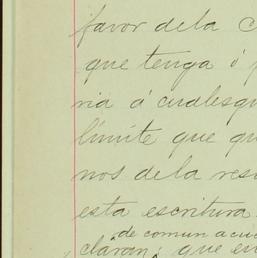 favor dela C
que tenga ó p
ria á cualesqu
límite que qu
nos dela res
esta escritura
de comun acue
claran; que en